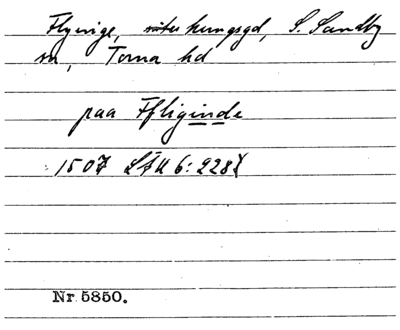 Flyinge, kungsgd, S. Sandby
sn, Torna hd
paa Ffliginde
1507 LÄU 6:228
Nr 5850.